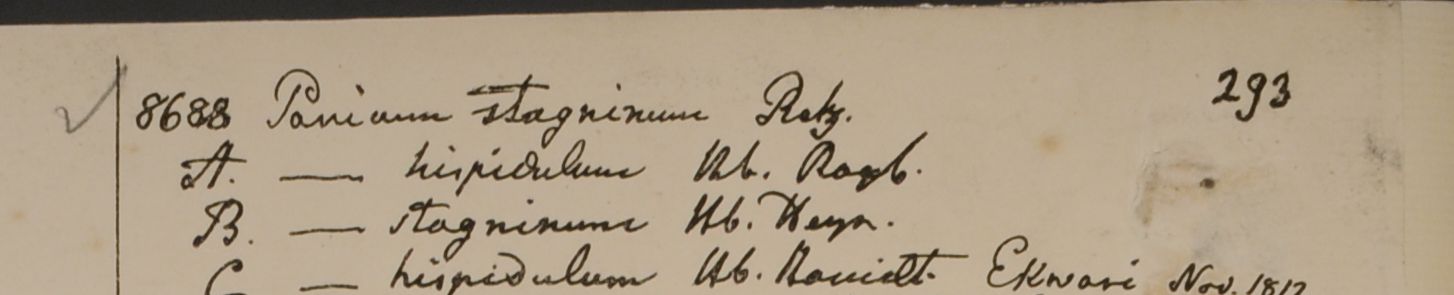 8688 Panicum stagninum Retz. 293
A. — hispidulum Hb. Roxb.
B. — stagninum Hb. Heyn.
C — hispidulum Hb. Ekwari Nov. 1812